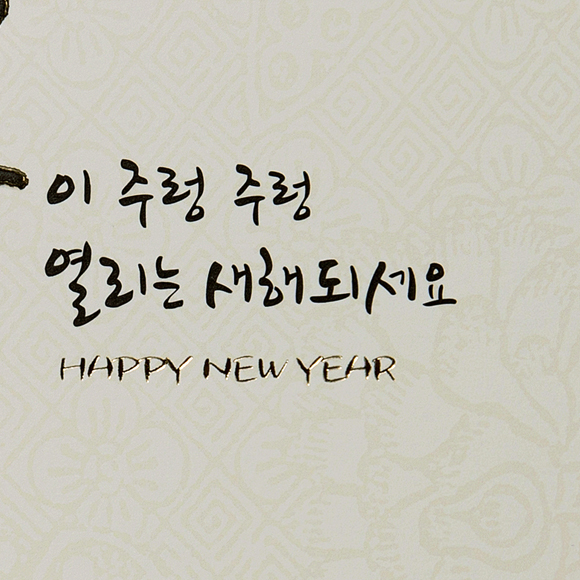 이 주렁 주렁
열리는 새해되세요
HAPPY NEW YEAR